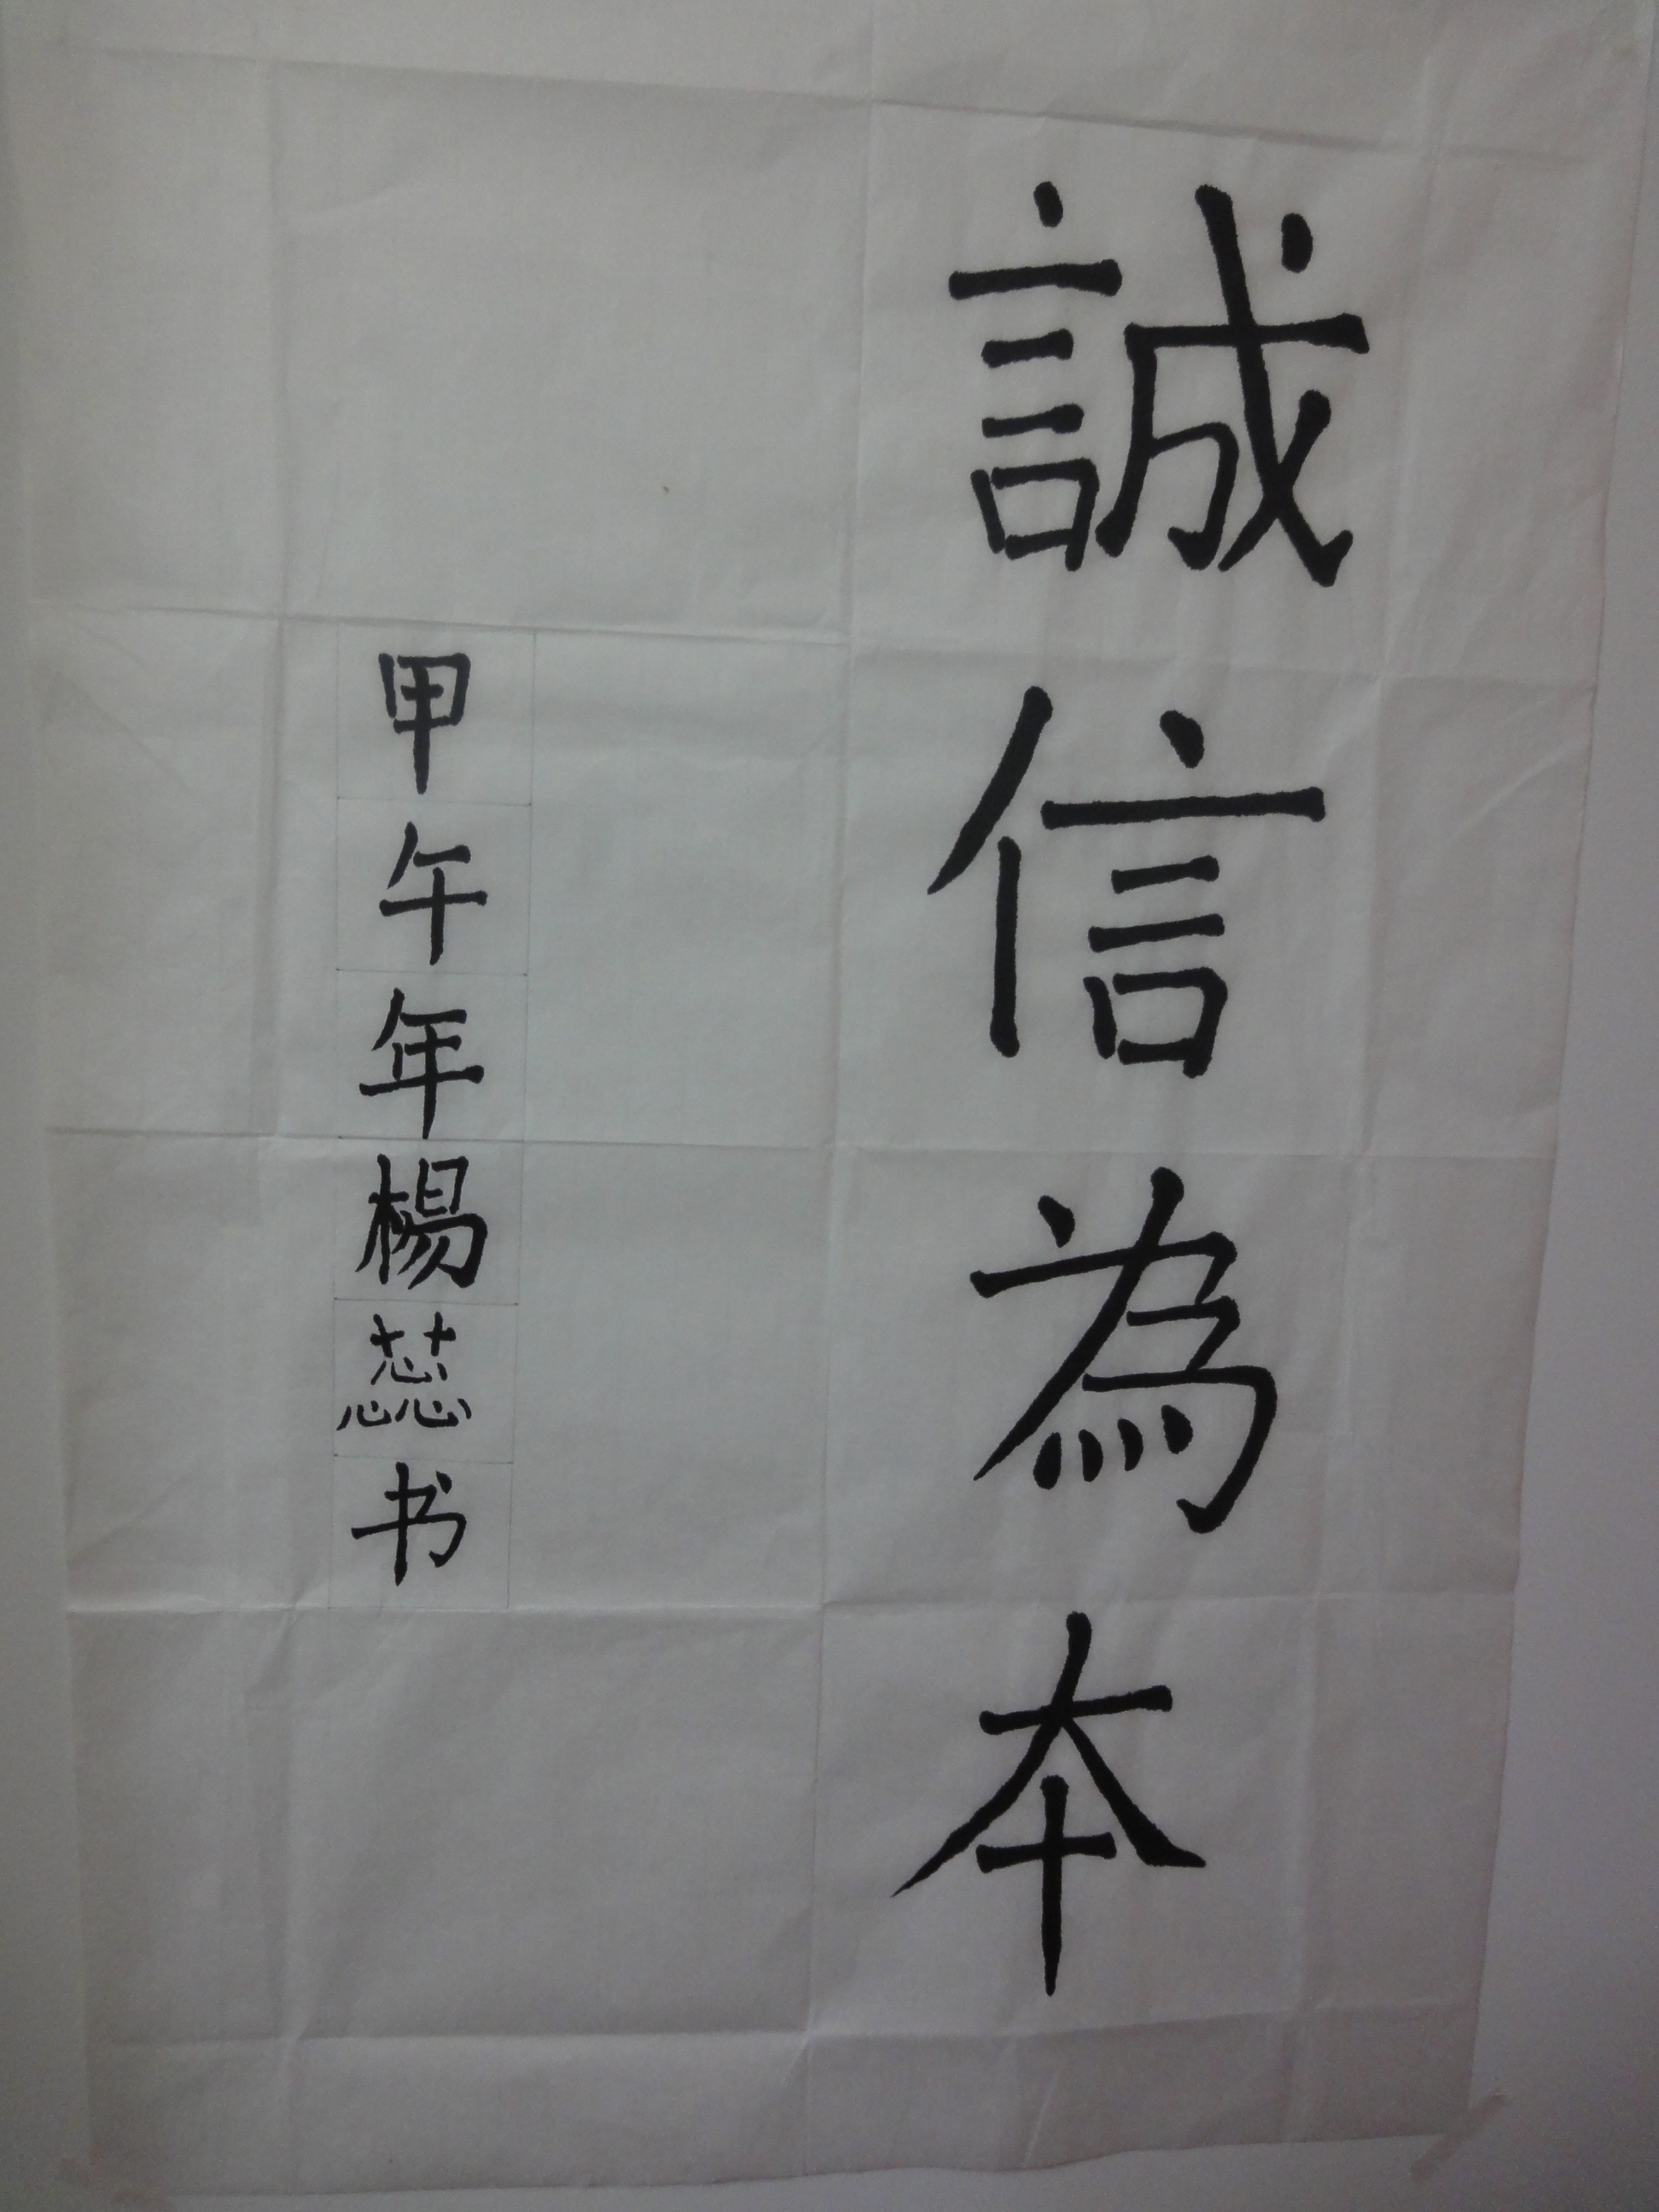 誠信為本
甲午年楊蕊书